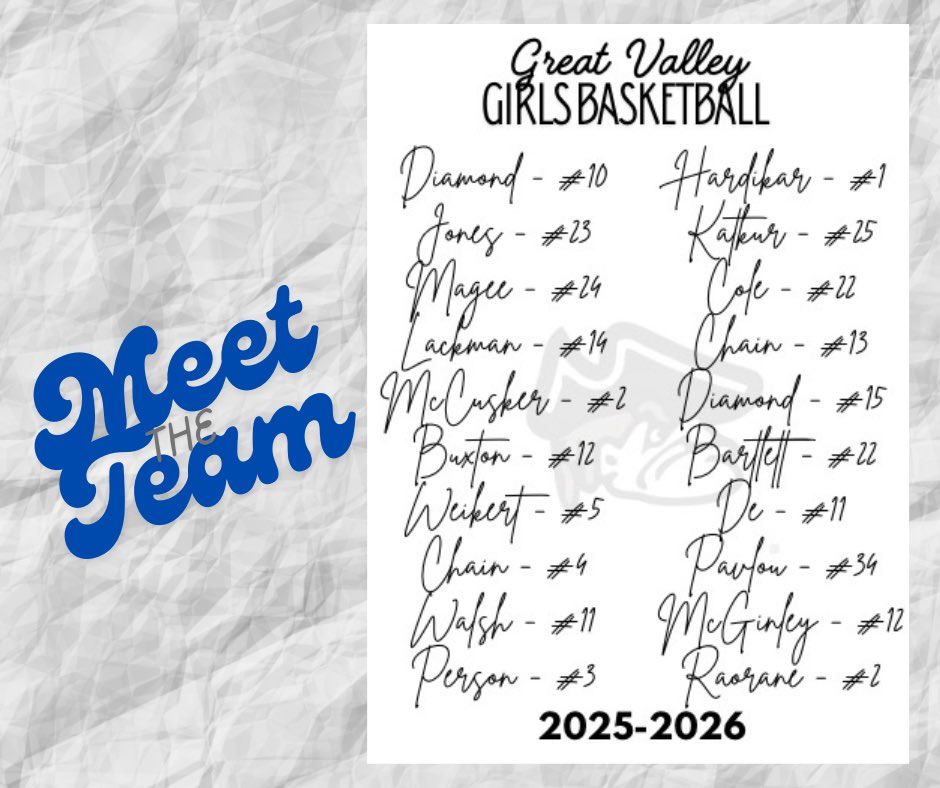 Meet
THE
Team
Great Valley
GIRLS BASKETBALL
Diamond - #10
Jones - #23
Magee - #24
Lackman - #14
McCusker - #2
Buxton - #12
Weikert - #5
Chain - #4
Walsh - #11
Person - #3
Hardikar - #1
Katkur - #25
Cole - #22
Chain - #13
Diamond - #15
Bartlett - #22
De - #11
Pavlou - #34
McGinley - #12
Raorane - #2
2025-2026